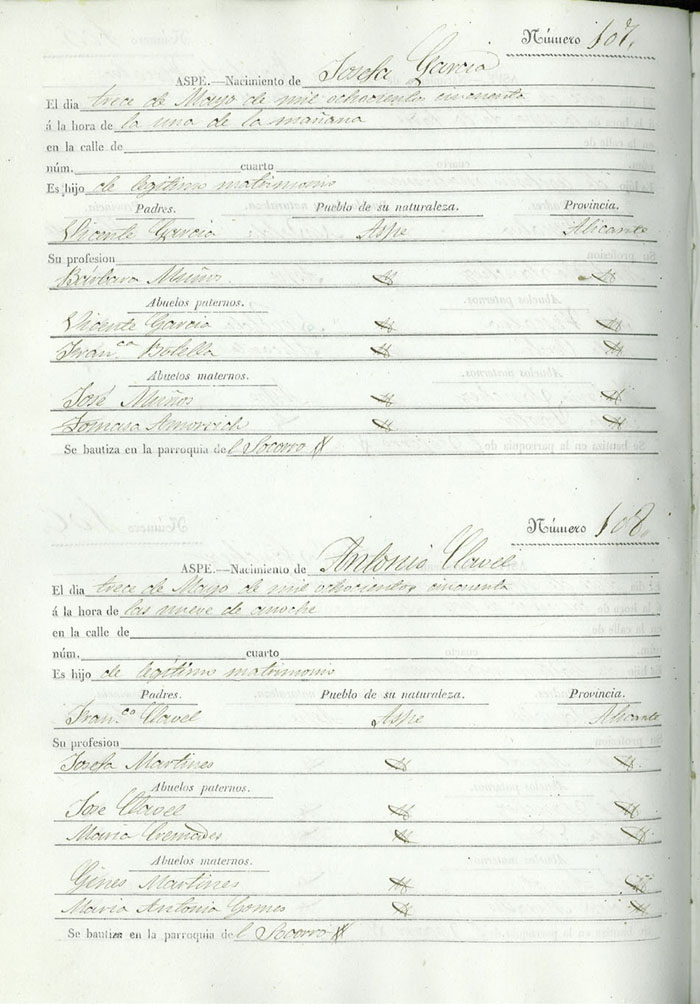 Número 107.
ASPE.—Nacimiento de Josefa Garcia
El dia trece de Mayo de mil ochocientos cincuenta
á la hora de la una de la mañana
en la calle de
núm. cuarto
Es hijo de legitimo matrimonio
Padres. Pueblo de su naturaleza. Provincia.
Vicente Garcia Aspe Alicante
Su profesion
Bárbara Muños
Abuelos paternos.
Vicente Garcia
Fran.ca Botella
Abuelos maternos.
José Muños
Tomasa Amorrich
Se bautiza en la parroquia del Socorro
Número 108.
ASPE.—Nacimiento de Antonio Clavel
El dia trece de Mayo de mil ochocientos cincuenta
á la hora de las nueve de anoche
en la calle de
núm. cuarto
Es hijo de legitimo matrimonio
Padres. Pueblo de su naturaleza. Provincia.
Fran.co Clavel Aspe Alicante
Su profesion
Josefa Martines
Abuelos paternos.
José Clavel
Maria Cremades
Abuelos maternos.
Gines Martines
Maria Antonia Gomes
Se bautiza en la parroquia del Socorro